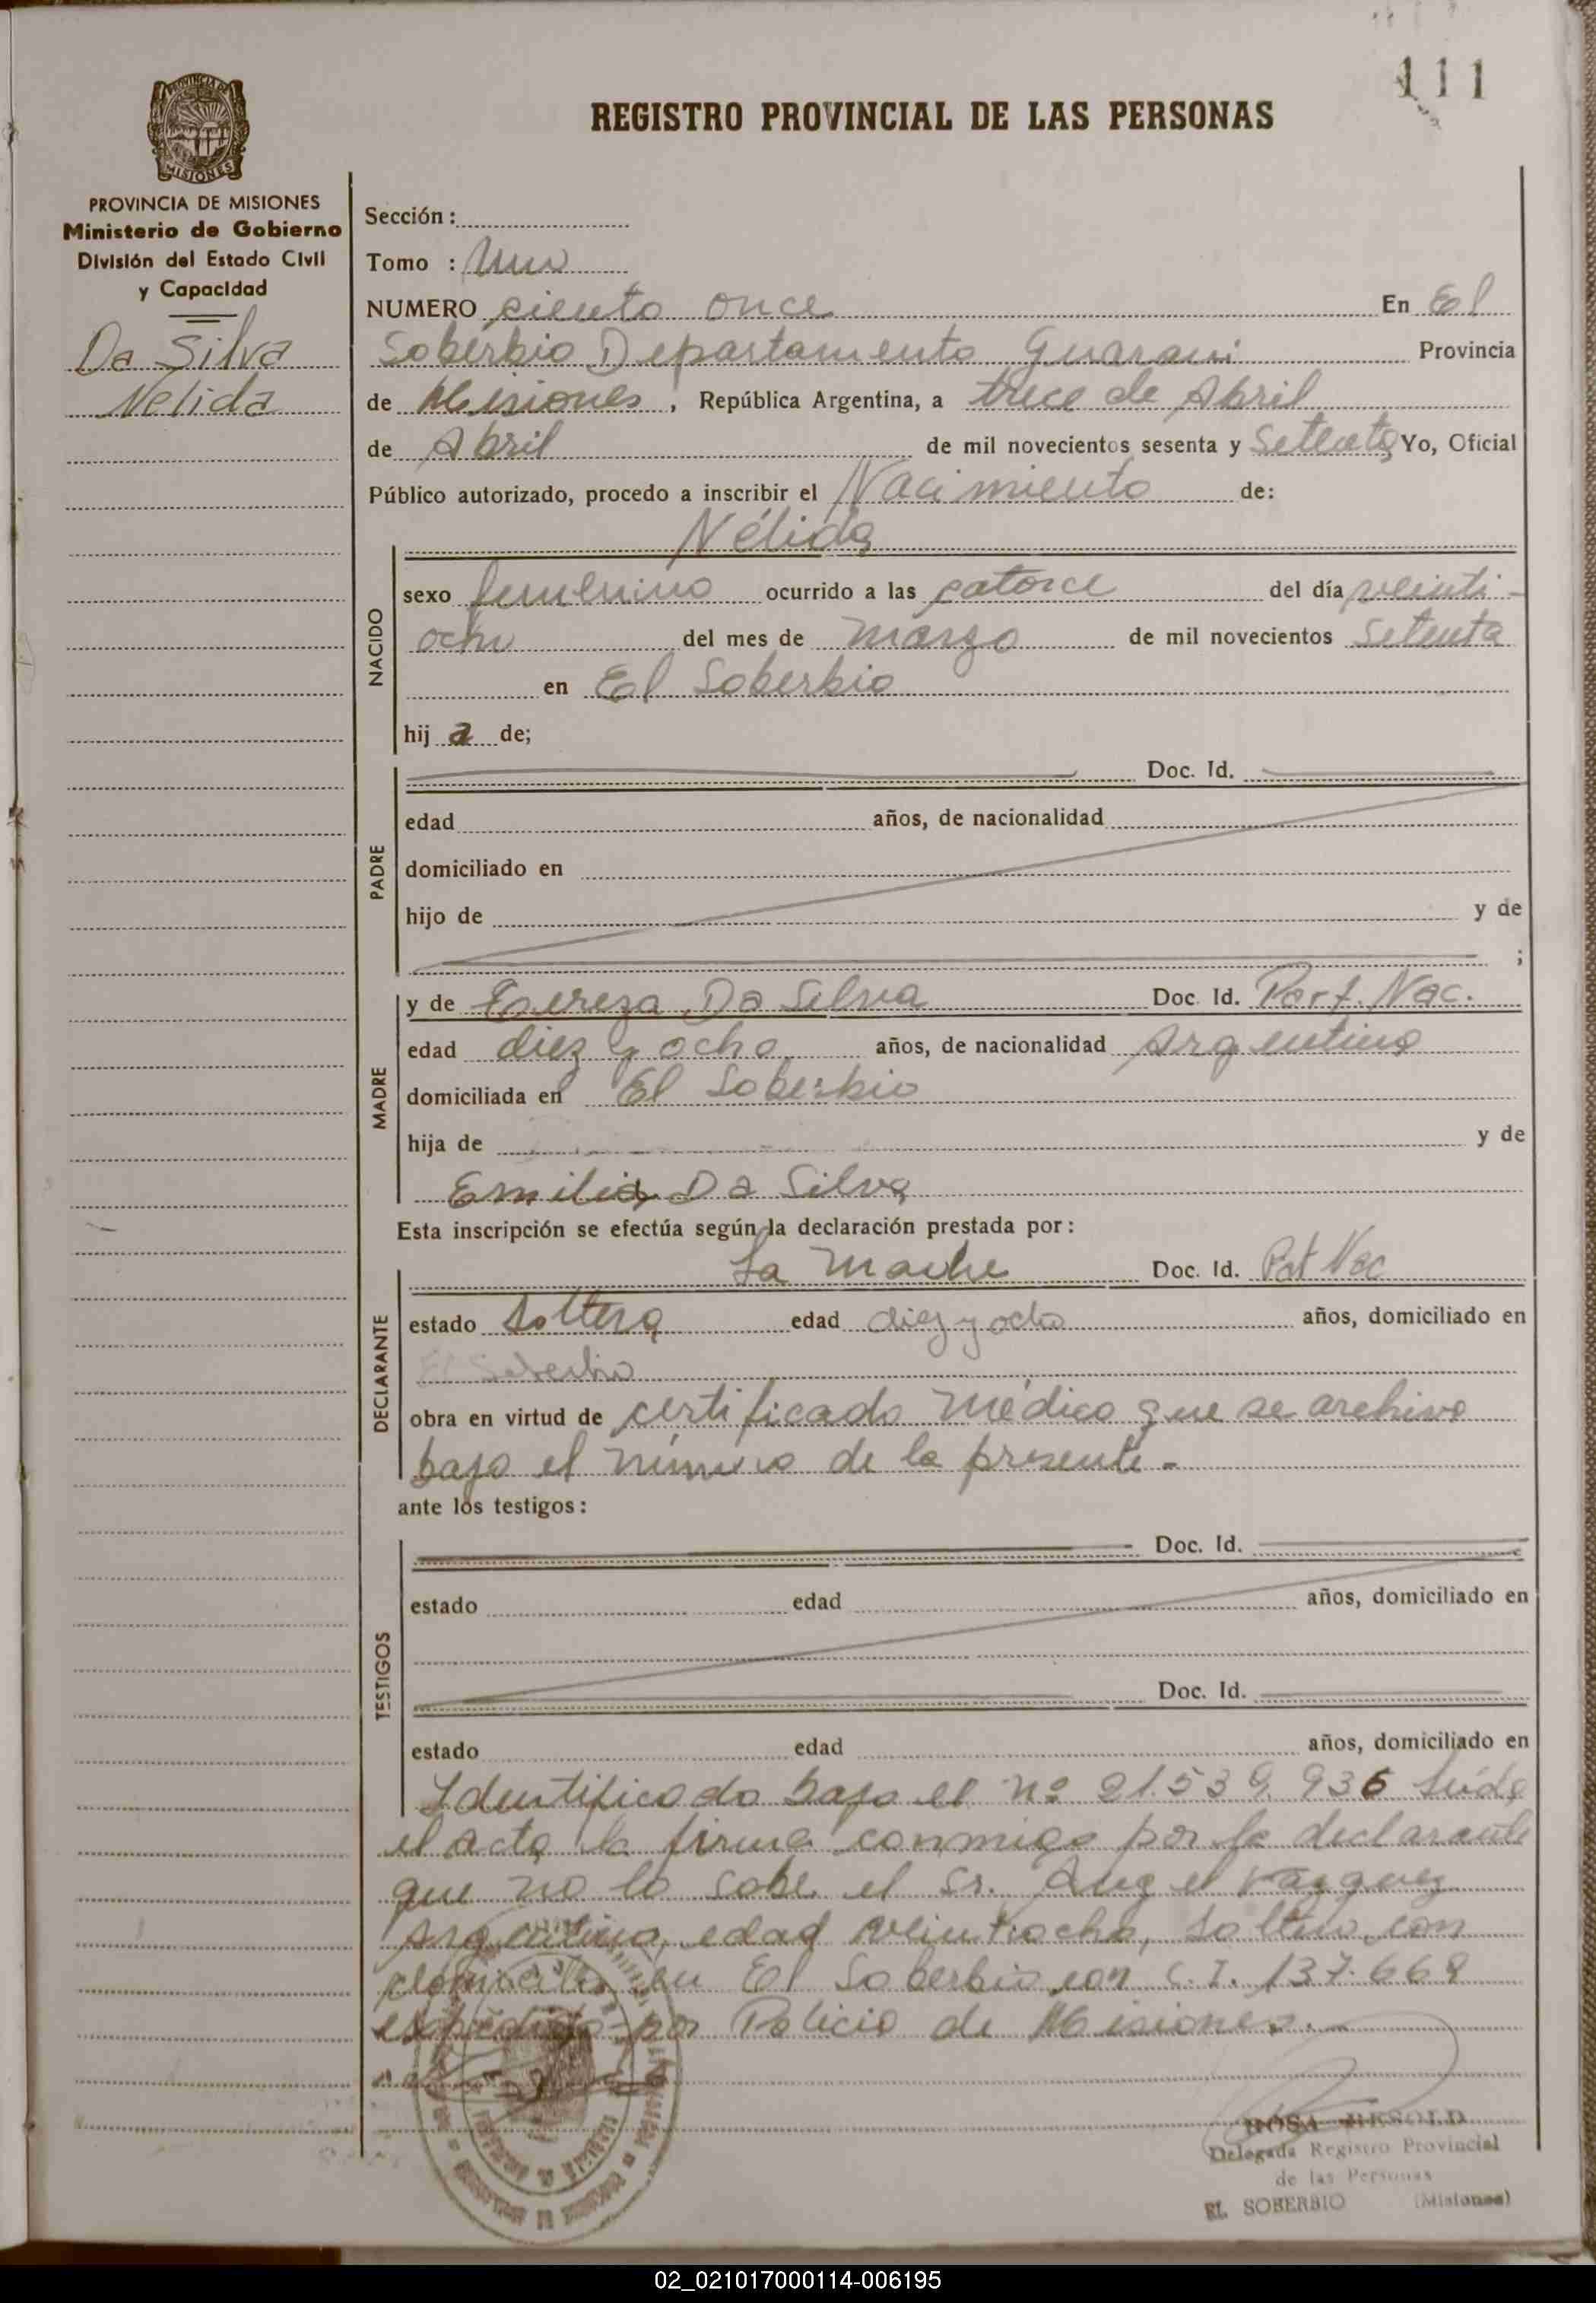 111
REGISTRO PROVINCIAL DE LAS PERSONAS
MISIONES
PROVINCIA DE MISIONES
Ministerio de Gobierno
División del Estado Civil
y Capacidad
Da Silva
Nelida
Sección :
Tomo : Uno
NUMERO ciento once En El
Soberbio Departamento Guarani Provincia
de Misiones, República Argentina, a trece de Abril
de Abril de mil novecientos sesenta y Setenta Yo, Oficial
Público autorizado, procedo a inscribir el Nacimiento de:
Nélida
NACIDO
sexo femenino ocurrido a las catorce del día veinti-
ocho del mes de marzo de mil novecientos Setenta
en El Soberbio
hij a de;
PADRE
Doc. Id.
edad años, de nacionalidad
domiciliado en
hijo de y de
;
MADRE
y de Tereza Da Silva Doc. Id. Part. Nac.
edad diez y ocho años, de nacionalidad Argentina
domiciliada en El Soberbio
hija de y de
Emilia Da Silva
Esta inscripción se efectúa según la declaración prestada por:
DECLARANTE
La madre Doc. Id. Pat Nac
estado soltera edad diez y ocho años, domiciliado en
El Soberbio
obra en virtud de certificado médico que se archiva
bajo el número de la presente -
ante los testigos:
TESTIGOS
Doc. Id.
estado edad años, domiciliado en
Doc. Id.
estado edad años, domiciliado en
Identificado bajo el nº 21.539.936 Leída
el acta la firma conmigo por la declarante
que no lo sabe el Sr. Angel Vazquez
Argentino, edad veintiocho, soltero, con
domicilio en El Soberbio con C.I. 137.669
expedida por Policia de Misiones.
ROSA
Delegada Registro Provincial
de las Personas
EL SOBERBIO (Misiones)
02_021017000114-006195